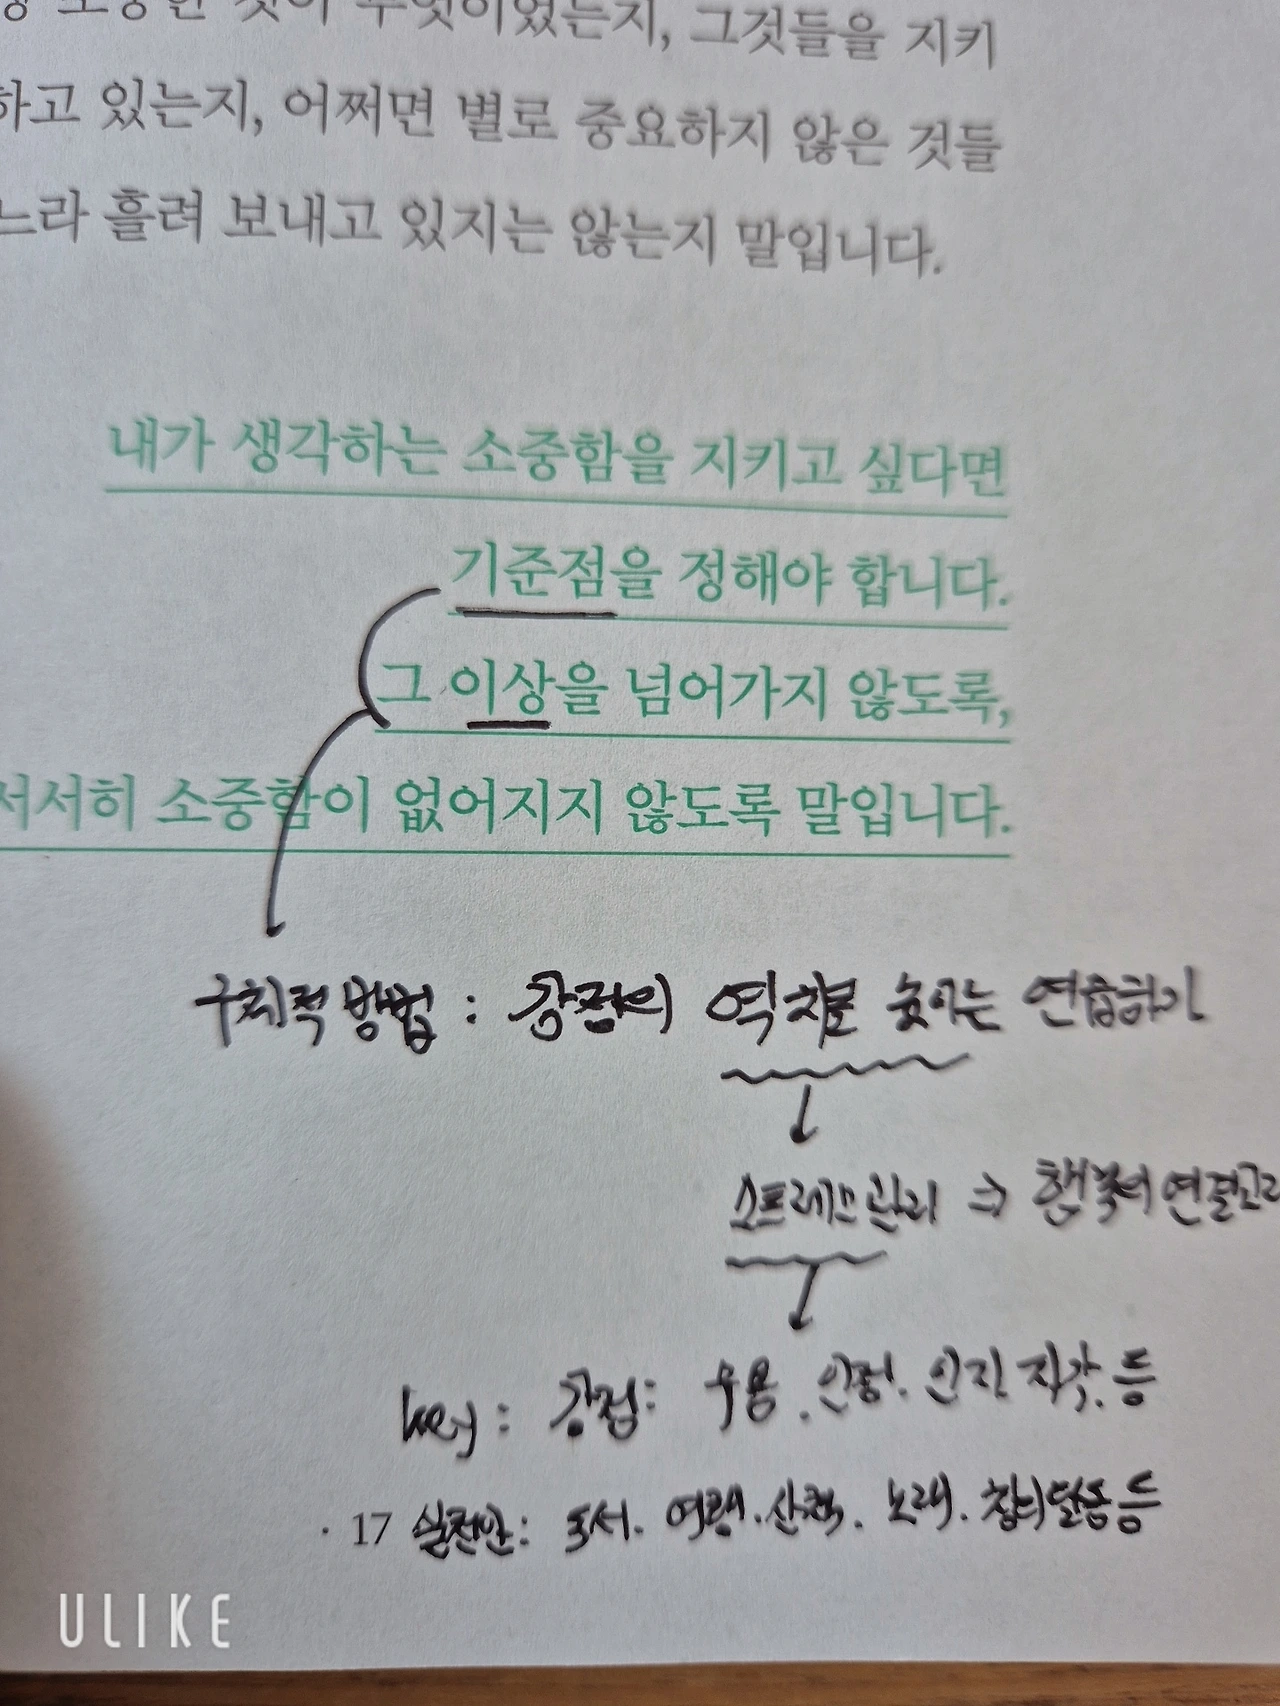 소중한 것이 무엇이었는지, 그것들을 지키
하고 있는지, 어쩌면 별로 중요하지 않은 것들
느라 흘려 보내고 있지는 않는지 말입니다.
내가 생각하는 소중함을 지키고 싶다면
기준점을 정해야 합니다.
그 이상을 넘어가지 않도록,
서서히 소중함이 없어지지 않도록 말입니다.
구체적 방법 : 강점의 역치를 높이는 연습하기
스트레스 관리 ⇒ 행복의 연결고리
key : 강점 : 수용. 인정. 인지 자각. 등
· 17 실천안 : 독서. 여행. 산책. 노래. 창의활동 등
ULIKE